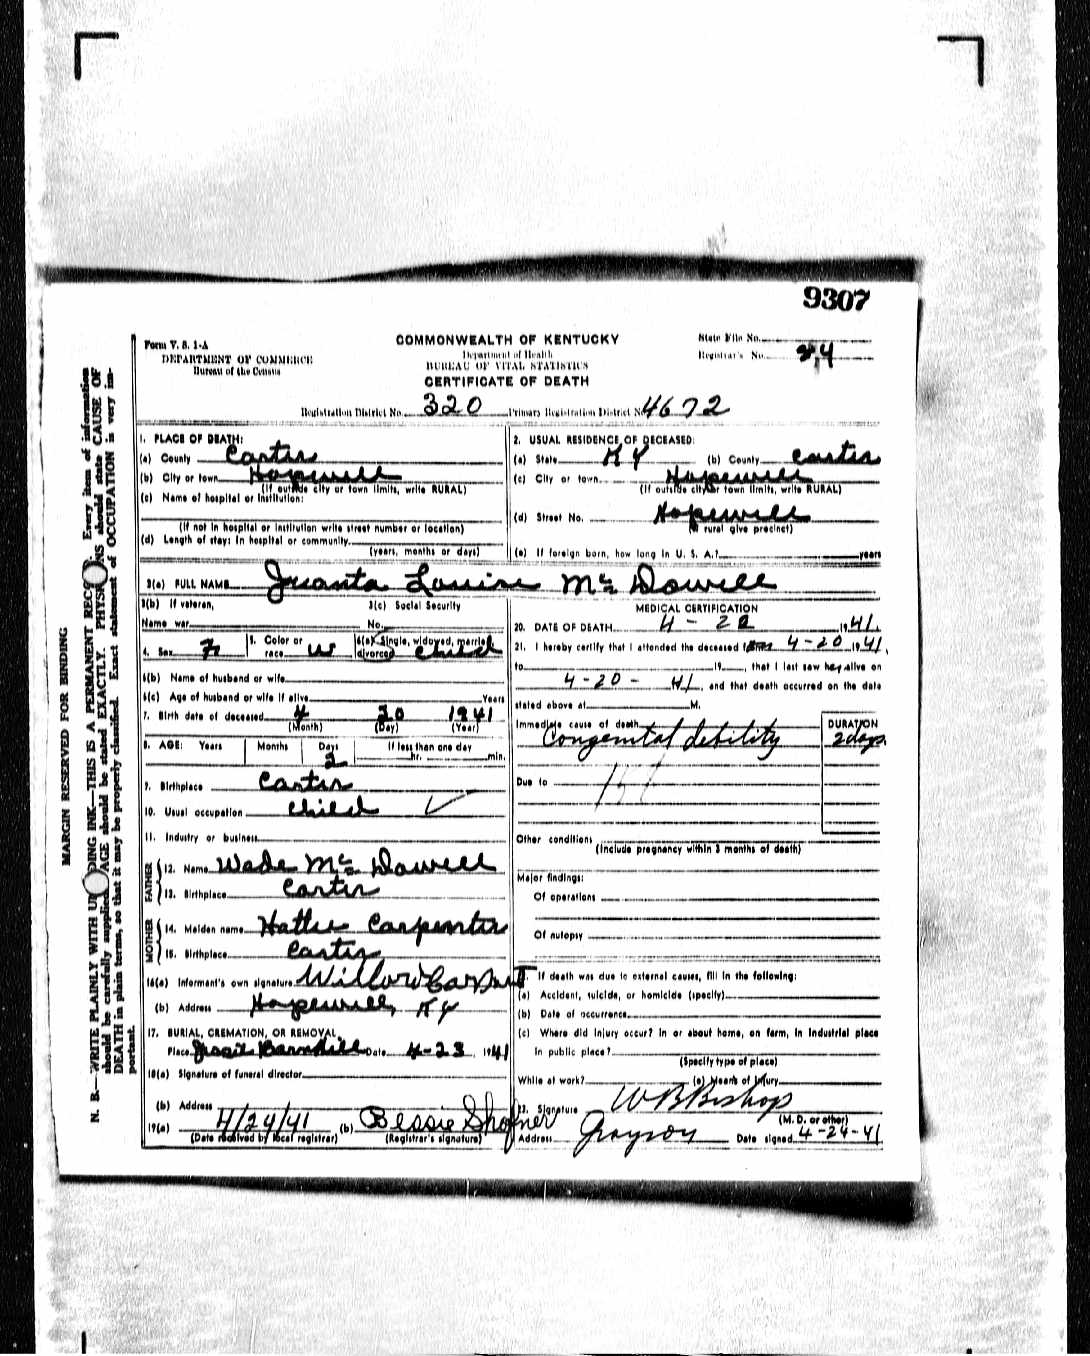 9307
Form V. S. 1-A
DEPARTMENT OF COMMERCE
Bureau of the Census
COMMONWEALTH OF KENTUCKY
Department of Health
BUREAU OF VITAL STATISTICS
CERTIFICATE OF DEATH
State File No.
Registrar's No. 24
Registration District No. 320 Primary Registration District No. 4672
1. PLACE OF DEATH:
(a) County Carter
(b) City or town Hopewell
(If outside city or town limits, write RURAL)
(c) Name of hospital or institution:
(If not in hospital or institution write street number or location)
(d) Length of stay: In hospital or community
(years, months or days)
2. USUAL RESIDENCE OF DECEASED:
(a) State KY (b) County Carter
(c) City or town Hopewell
(If outside city or town limits, write RURAL)
(d) Street No. Hopewell
(If rural give precinct)
(e) If foreign born, how long in U. S. A.? years
3(a) FULL NAME Juanta Louise McDowell
3(b) If veteran, 3(c) Social Security
Name war No.
4. Sex F 5. Color or race W 6(a) Single, widowed, married, divorced Child
6(b) Name of husband or wife
6(c) Age of husband or wife if alive Years
7. Birth date of deceased 4 20 1941
(Month) (Day) (Year)
8. AGE: Years Months Days If less than one day
2 hr. min.
9. Birthplace Carter
10. Usual occupation Child
11. Industry or business
FATHER
12. Name Wade McDowell
13. Birthplace Carter
MOTHER
14. Maiden name Hattie Carpenter
15. Birthplace Carter
16(a) Informant's own signature
(b) Address Hopewell, KY
17. BURIAL, CREMATION, OR REMOVAL
Place Date 4-23 1941
18(a) Signature of funeral director
(b) Address
19(a) 4/24/41 (b) Bessie Shofner
(Date received by local registrar) (Registrar's signature)
MEDICAL CERTIFICATION
20. DATE OF DEATH 4 - 22 1941
21. I hereby certify that I attended the deceased from 4-20 1941,
to 19 , that I last saw her alive on
4-20- 41, and that death occurred on the date
stated above at M.
Immediate cause of death DURATION
Congenital debility 2 days
Due to
Other conditions
(Include pregnancy within 3 months of death)
Major findings:
Of operations
Of autopsy
If death was due to external causes, fill in the following:
(a) Accident, suicide, or homicide (specify)
(b) Date of occurrence
(c) Where did injury occur? In or about home, on farm, in industrial place
in public place?
(Specify type of place)
While at work? (e) Means of injury
23. Signature W B Bishop
(M. D. or other)
Address Grayson Date signed 4-24-41
MARGIN RESERVED FOR BINDING